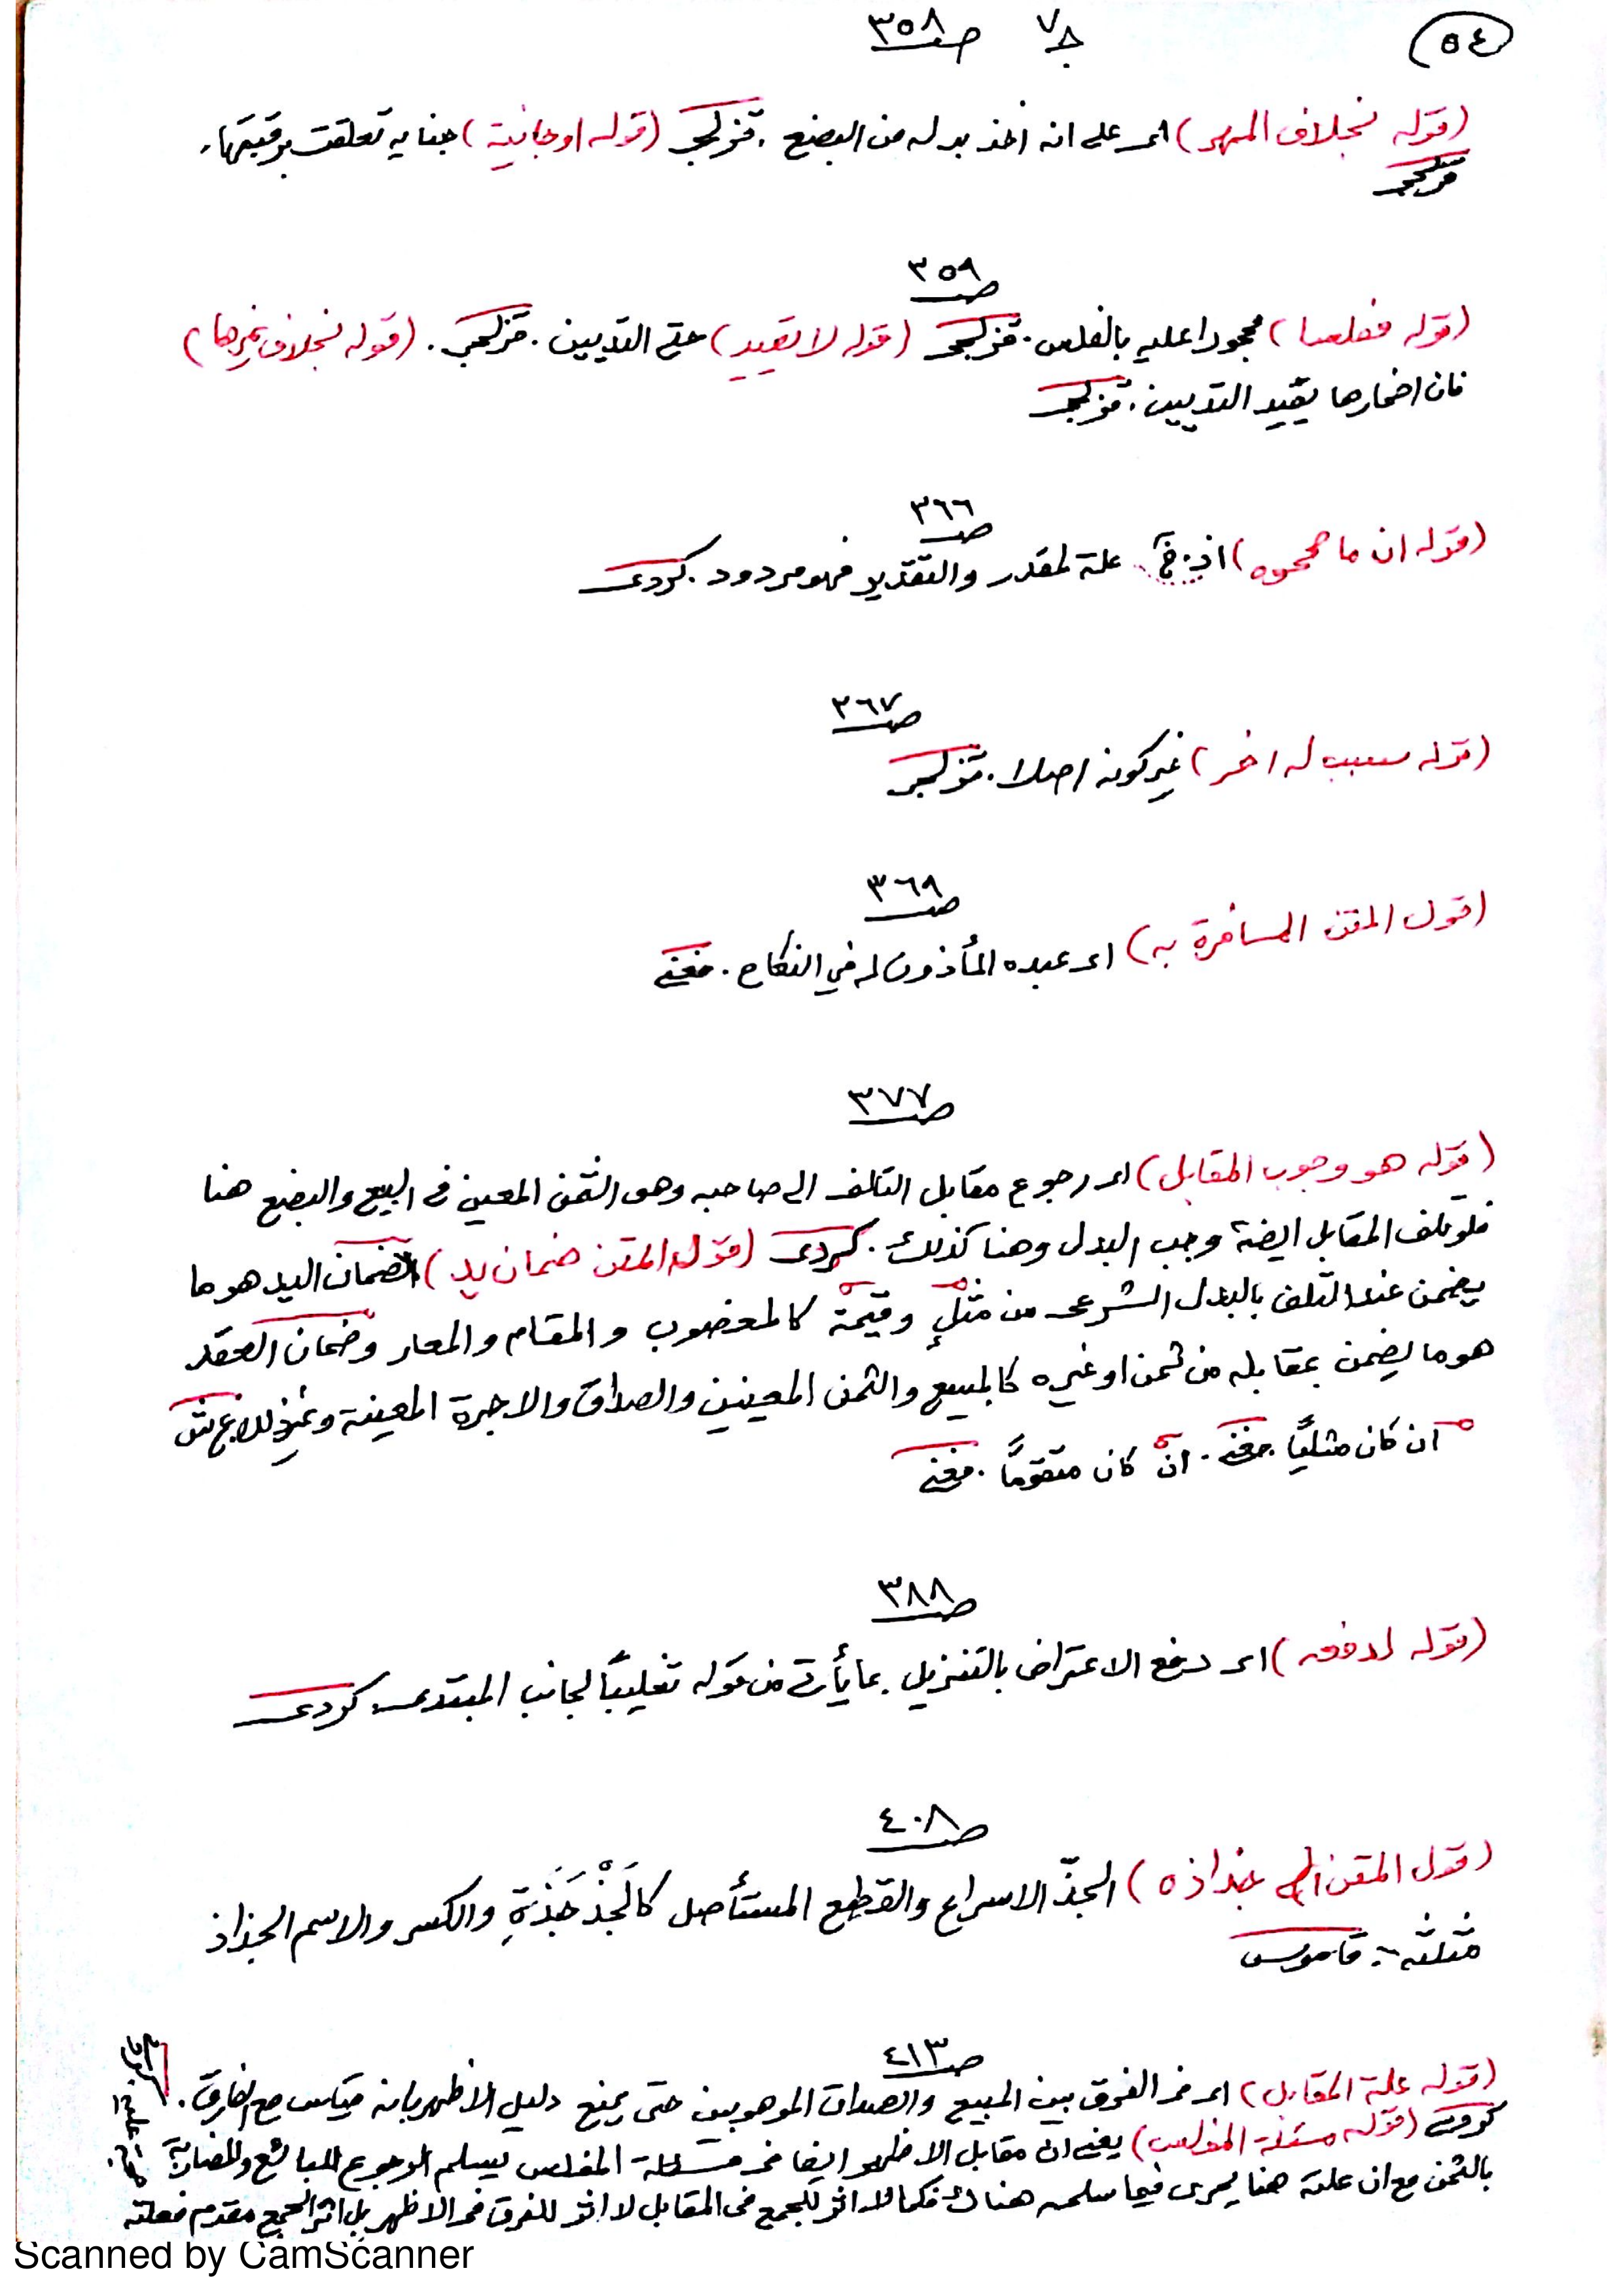 ٥٤ ج ٧ صـ ٣٥٨
(قوله بخلاف المهر) اى على انه اخذ بدله من البضع . قزلجى (قوله او جانية) جناية تعلقت برقبتها.
قزلجى
صـ ٣٥٩
(قوله مفلسا) محجورا عليه بالفلس . قزلجى (قوله لا يقيد) حتى التديين . قزلجى . (قوله بخلاف غيرها)
فان اضمارها يقيد التديين . قزلجى
صـ ٣٦٦
(قوله ان ما صححوه) علة لمقدر والتقدير فهو مردود . كردى
صـ ٣٦٧
(قوله سبب له اخر) غير كونه اصلا . قزلجى
صـ ٣٦٩
(قول المتن المسافرة به) اى عبده المأذون له في النكاح . مغنى
صـ ٣٧٧
(قوله هو وجوب المقابل) اى رجوع مقابل التالف الى صاحبه وهو الثمن المعين فى البيع والبضع هنا
فلو تلف المقابل ايضا وجب البدل وهنا كذلك . كردى (قوله المتن ضمان يد) ضمان اليد هو ما
يضمن عند التلف بالبدل الشرعى من مثلٍ وقيمة كالمغصوب والمقام والمعار وضمان العقد
هو ما يضمن بمقابله من ثمن او غيره كالمبيع والثمن المعينين والصداق والاجرة المعينة وغير ذلك ع ش
ان كان مثليًا . مغنى . ان كان متقوّمًا . مغنى
صـ ٣٨٨
(قوله لدفعه) اى دفع الاعتراض بالتنزيل بما يأتى من قوله تغليبًا لجانب المبتدى . كردى
صـ ٤٠٨
(قول المتن جذاذه) الجذّ الاسراع والقطع المستأصل كالجَذْجَذَةِ والكسر والاسم الجذاذ
مثلثه . قاموس
صـ ٤١٣
(قوله علة المقابل) اى فى الفرق بين المبيع والصداق الموهوبين حتى يمنع دليل الاظهر بانه قياس مع الفارق .
(قوله مسئلة المفلس) يعنى ان مقابل الاظهر ايضا فى مسئلة المفلس يسلم الرجوع للبائع والمضاربة
بالثمن مع ان علته هنا يجرى فيما سلمه هناك فكما لا اثر للجمع فى المقابل لا اثر للفرق فى الاظهر بل اثر الجمع مقدم فعلته
Scanned by CamScanner